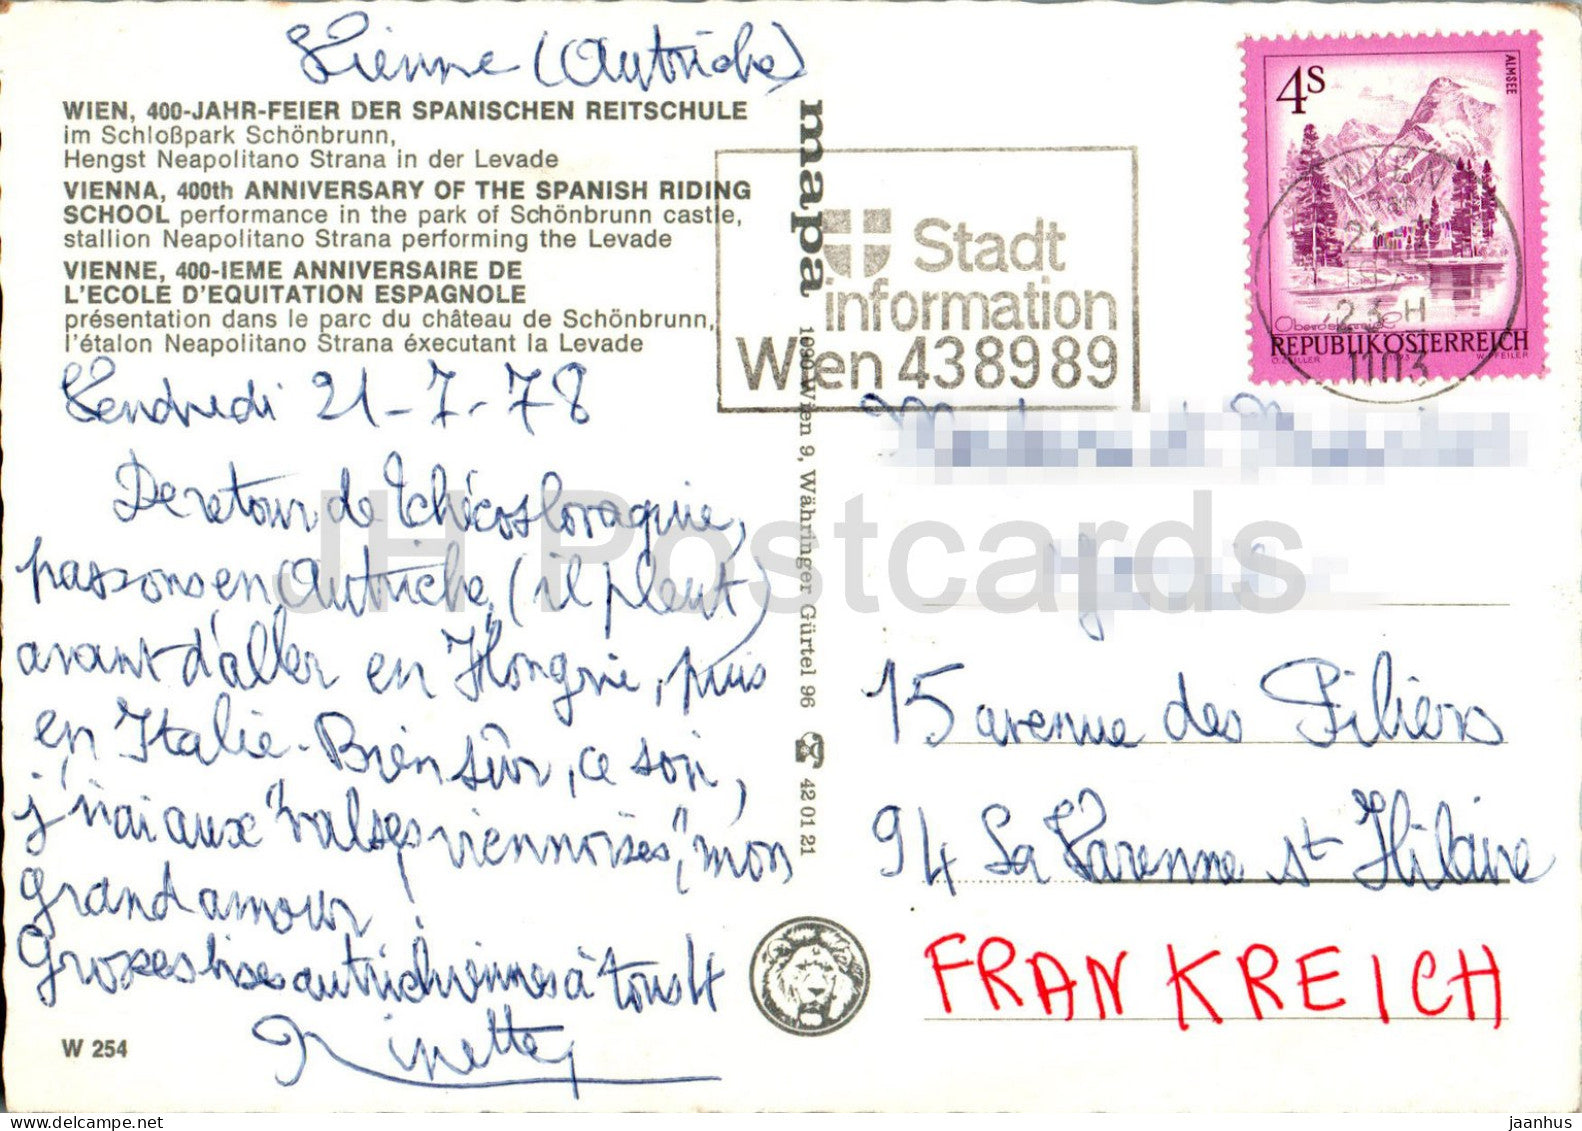 Vienne (Autriche)
WIEN, 400-JAHR-FEIER DER SPANISCHEN REITSCHULE
im Schloßpark Schönbrunn,
Hengst Neapolitano Strana in der Levade
VIENNA, 400th ANNIVERSARY OF THE SPANISH RIDING
SCHOOL performance in the park of Schönbrunn castle,
stallion Neapolitano Strana performing the Levade
VIENNE, 400-IEME ANNIVERSAIRE DE
L'ECOLE D'EQUITATION ESPAGNOLE
présentation dans le parc du château de Schönbrunn,
l'étalon Neapolitano Strana éxecutant la Levade
Vendredi 21-7-78
De retour de Tchécoslovaquie,
passons en Autriche, (il pleut)
avant d'aller en Hongrie, puis
en Italie. Bien sûr, ce soir,
j'irai aux "valses viennoises", mon
grand amour!
Grosses bises autrichiennes à tous 4
Ginette
W 254
mapa 1090 Wien 9, Währinger Gürtel 96 42 01 21
Stadt
information
Wien 43 89 89
4S
ALMSEE
REPUBLIK ÖSTERREICH
WIEN
21
23 H
1103
15 avenue des Piliers
94 La Varenne St Hilaire
FRANKREICH
JH Postcards
jaanhus